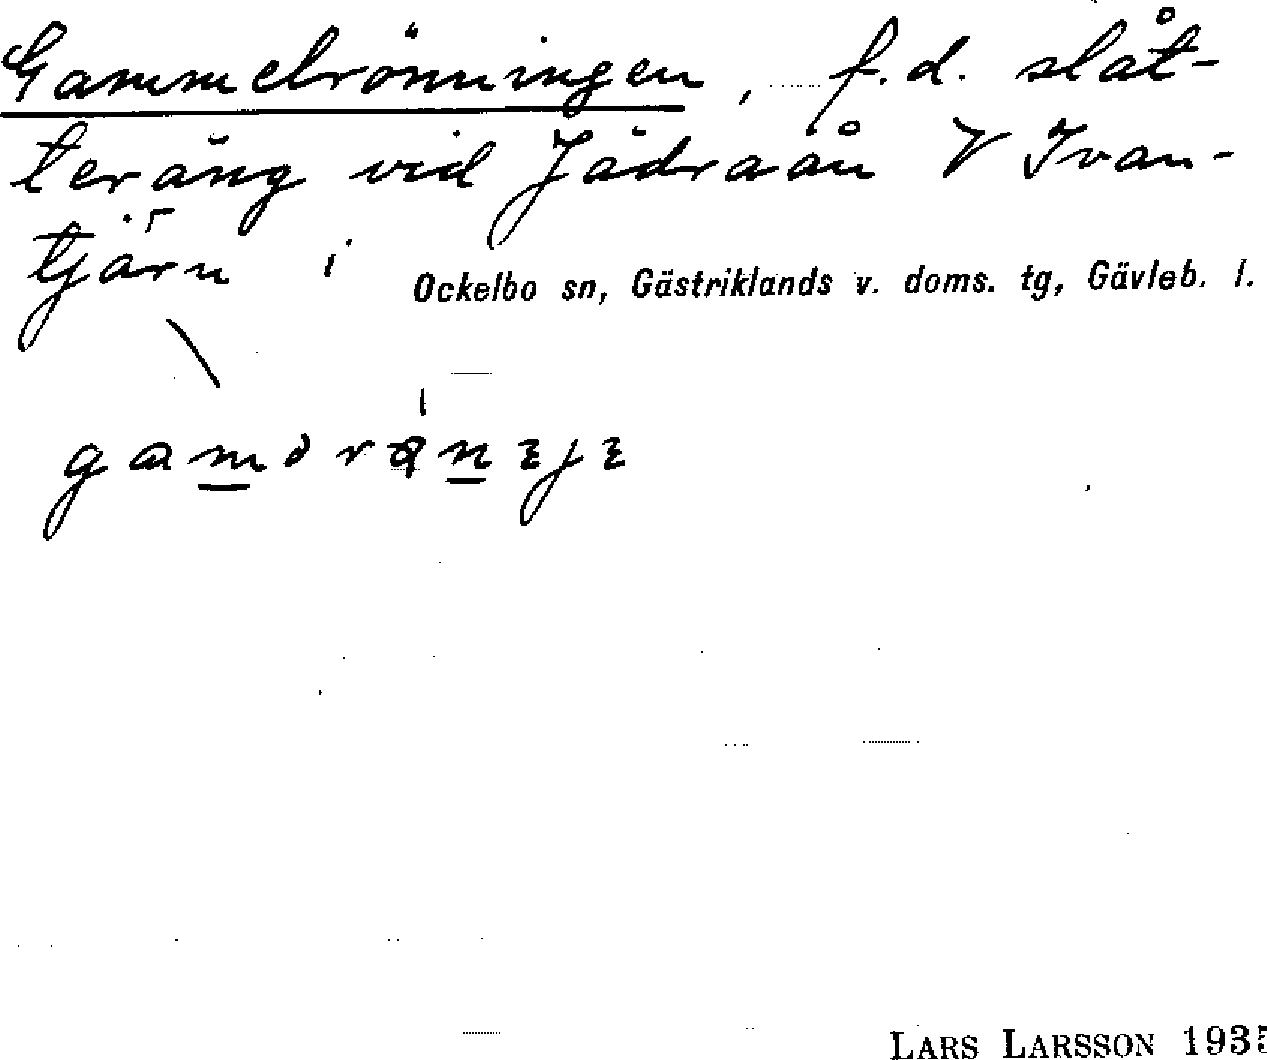 Gammelrönningen, f.d. slåt-
teräng vid Jädraån V Ivan-
tjärn i Ockelbo sn, Gästriklands v. doms. tg, Gävleb. l.
LARS LARSSON 193